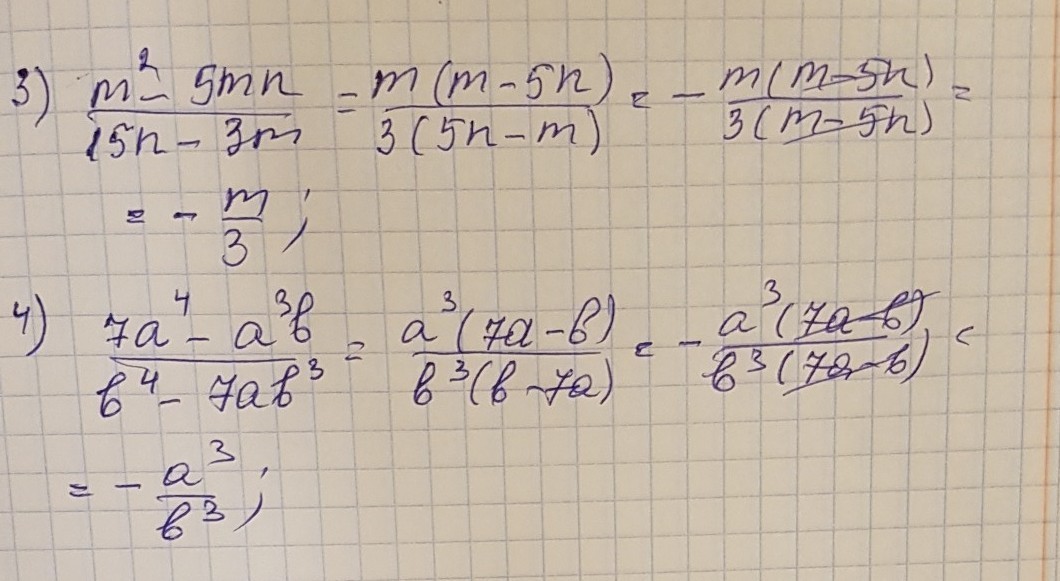 3) (m² - 5mn)/(15n - 3m) = m(m - 5n)/3(5n - m) = - m(m - 5n)/3(m - 5n) =
= - m/3;
4) (7a⁴ - a³b)/(b⁴ - 7ab³) = a³(7a - b)/b³(b - 7a) = - a³(7a - b)/b³(7a - b) =
= - a³/b³;